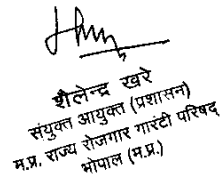 शैलेन्द्र खरे
संयुक्त आयुक्त (प्रशासन)
म.प्र. राज्य रोजगार गारंटी परिषद
भोपाल (म.प्र.)